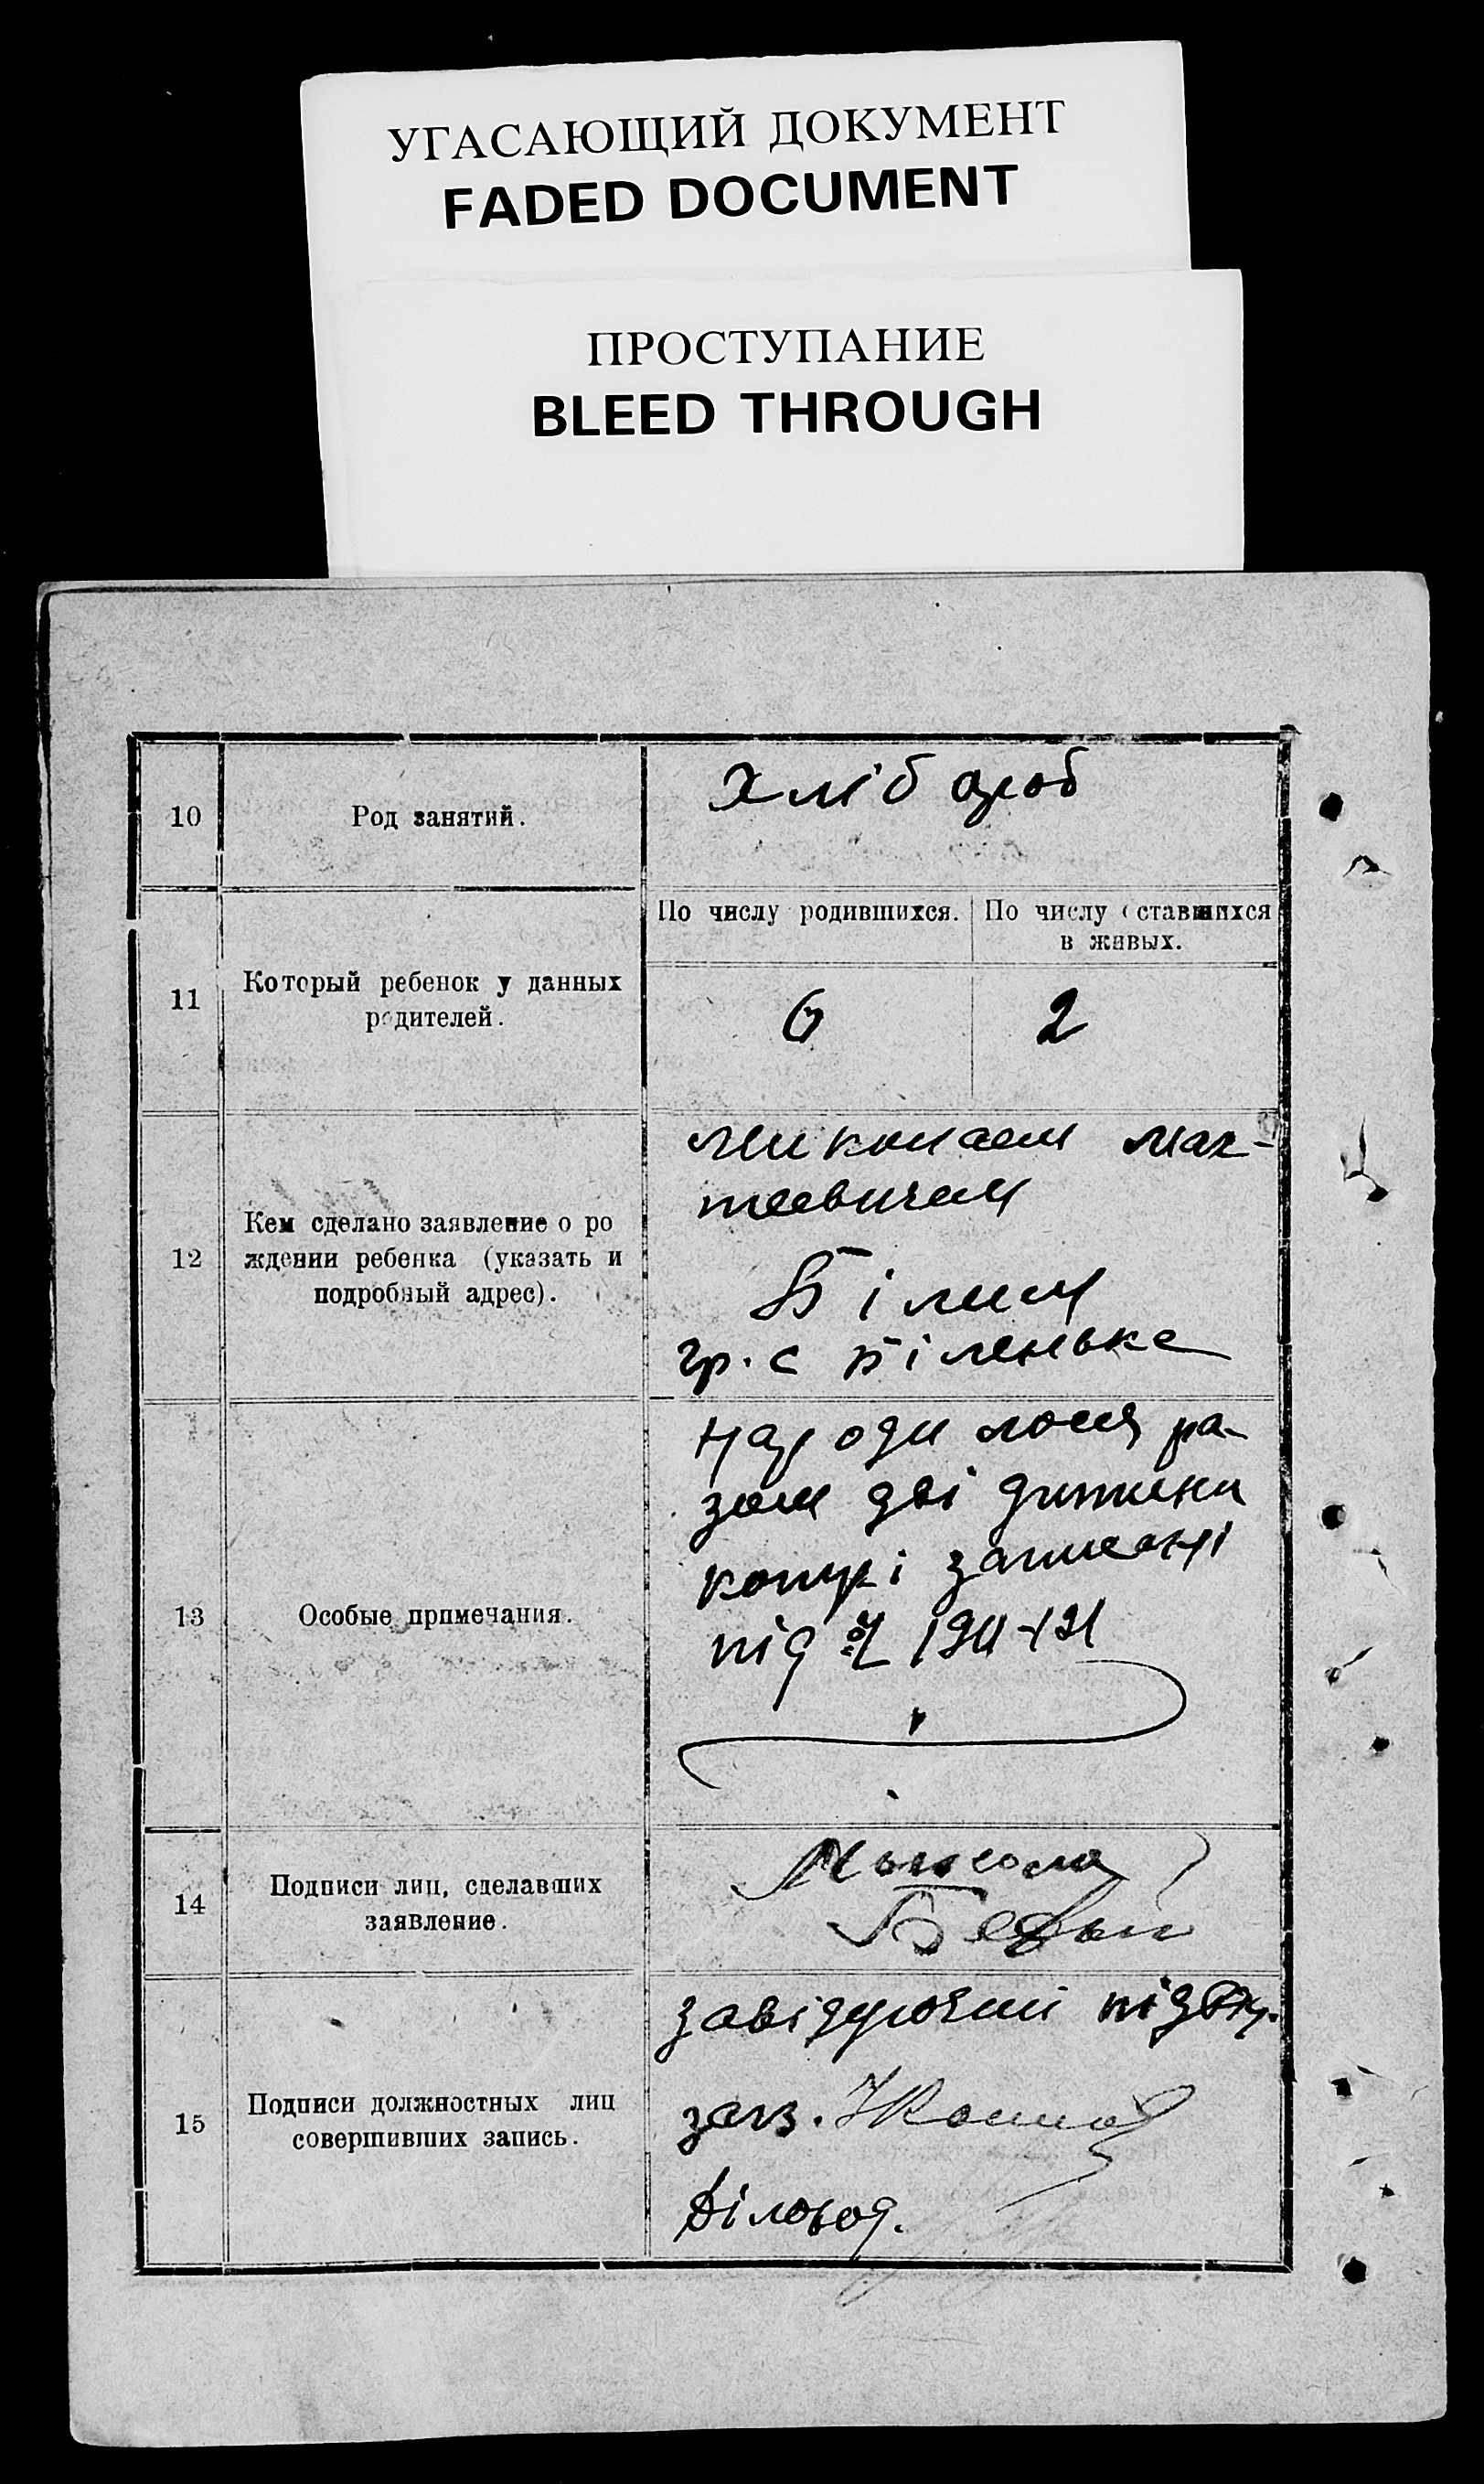 УГАСАЮЩИЙ ДОКУМЕНТ
FADED DOCUMENT
ПРОСТУПАНИЕ
BLEED THROUGH
10
Род занятий.
Хлібороб
11
Который ребенок у данных
родителей.
По числу родившихся.
По числу оставшихся
в живых.
6
2
12
Кем сделано заявление о ро
ждении ребенка (указать и
подробный адрес).
Миколаем Мат-
теевичем
Білим
гр. с Біленьке
13
Особые примечания.
Народилося ра-
зом дві дитини
котрі записані
під №
14
Подписи лиц, сделавших
заявление.
Мыкола
15
Подписи должностных лиц
совершивших запись.
завідуючий
загз.
Діловод.